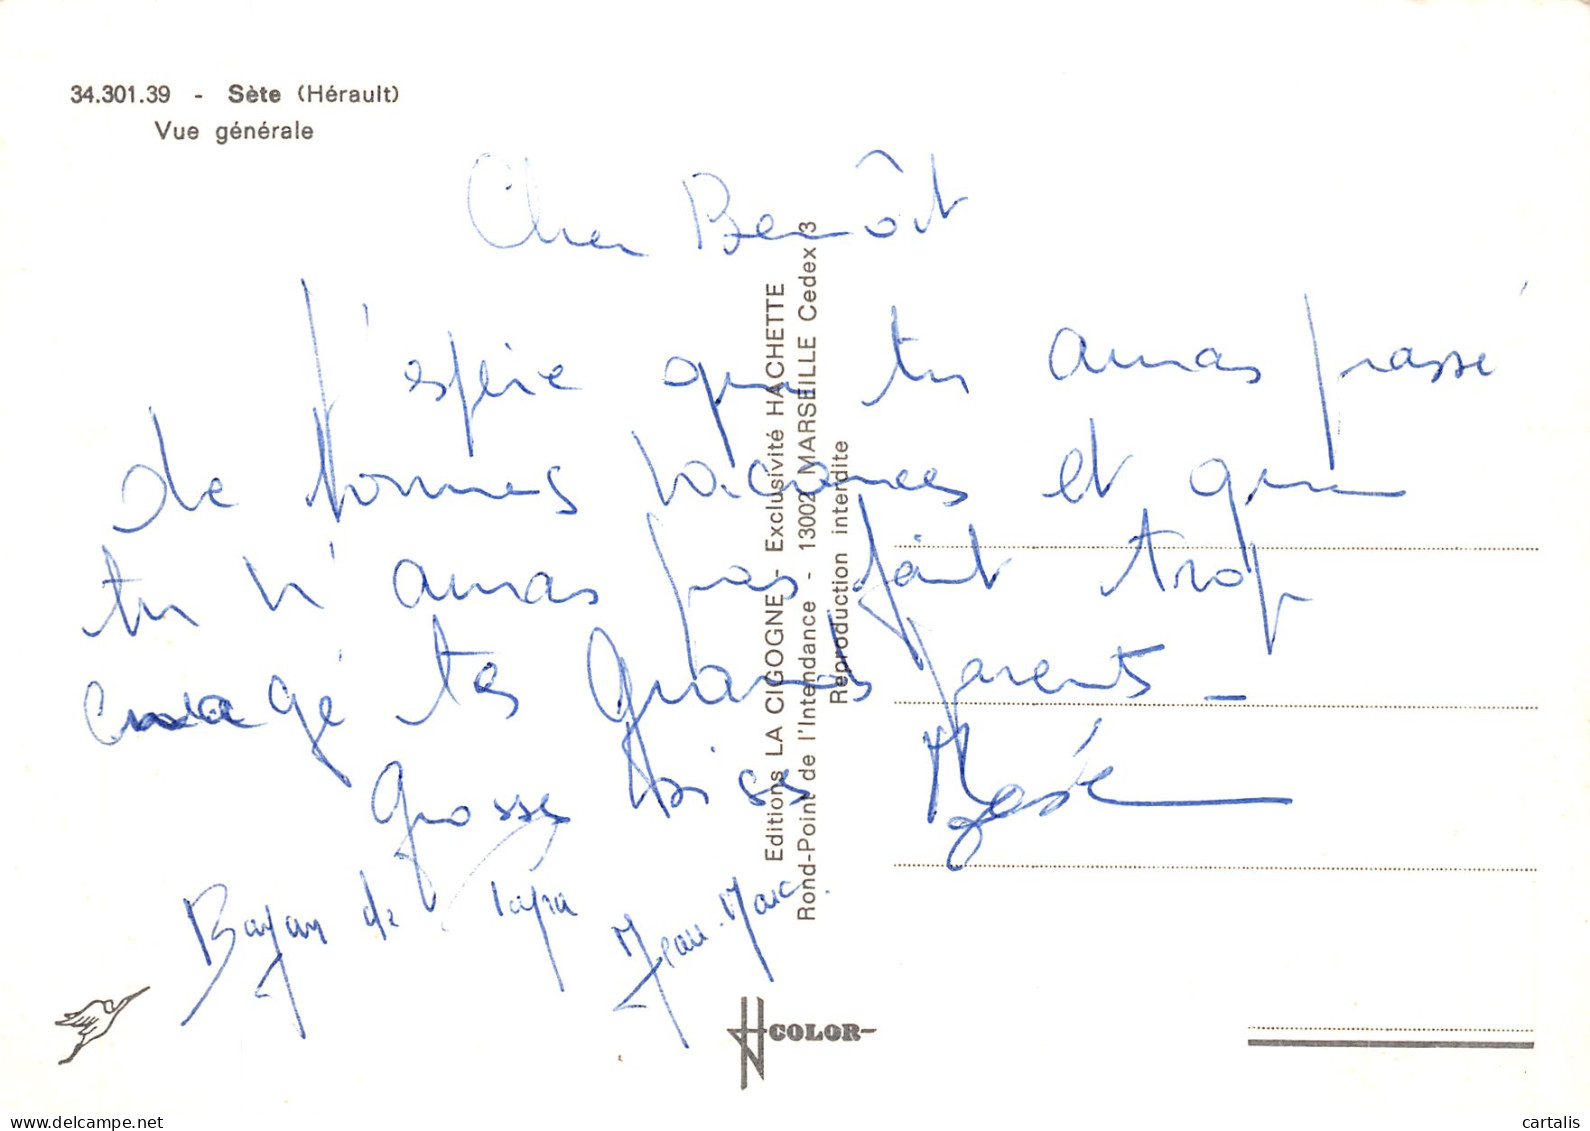 34.301.39 - Sète (Hérault)
Vue générale
Cher Benoît
J'espère que tu auras passé
de bonnes vacances et que
tu n'auras pas fait trop
enragé tes grands parents_
Grosse bises
de Papa
Jean-Marc.
Editions LA CIGOGNE - Exclusivité HACHETTE
Rond-Point de l'Intendance - 13002 MARSEILLE Cedex 3
Reproduction interdite
COLOR
delcampe.net
cartalis